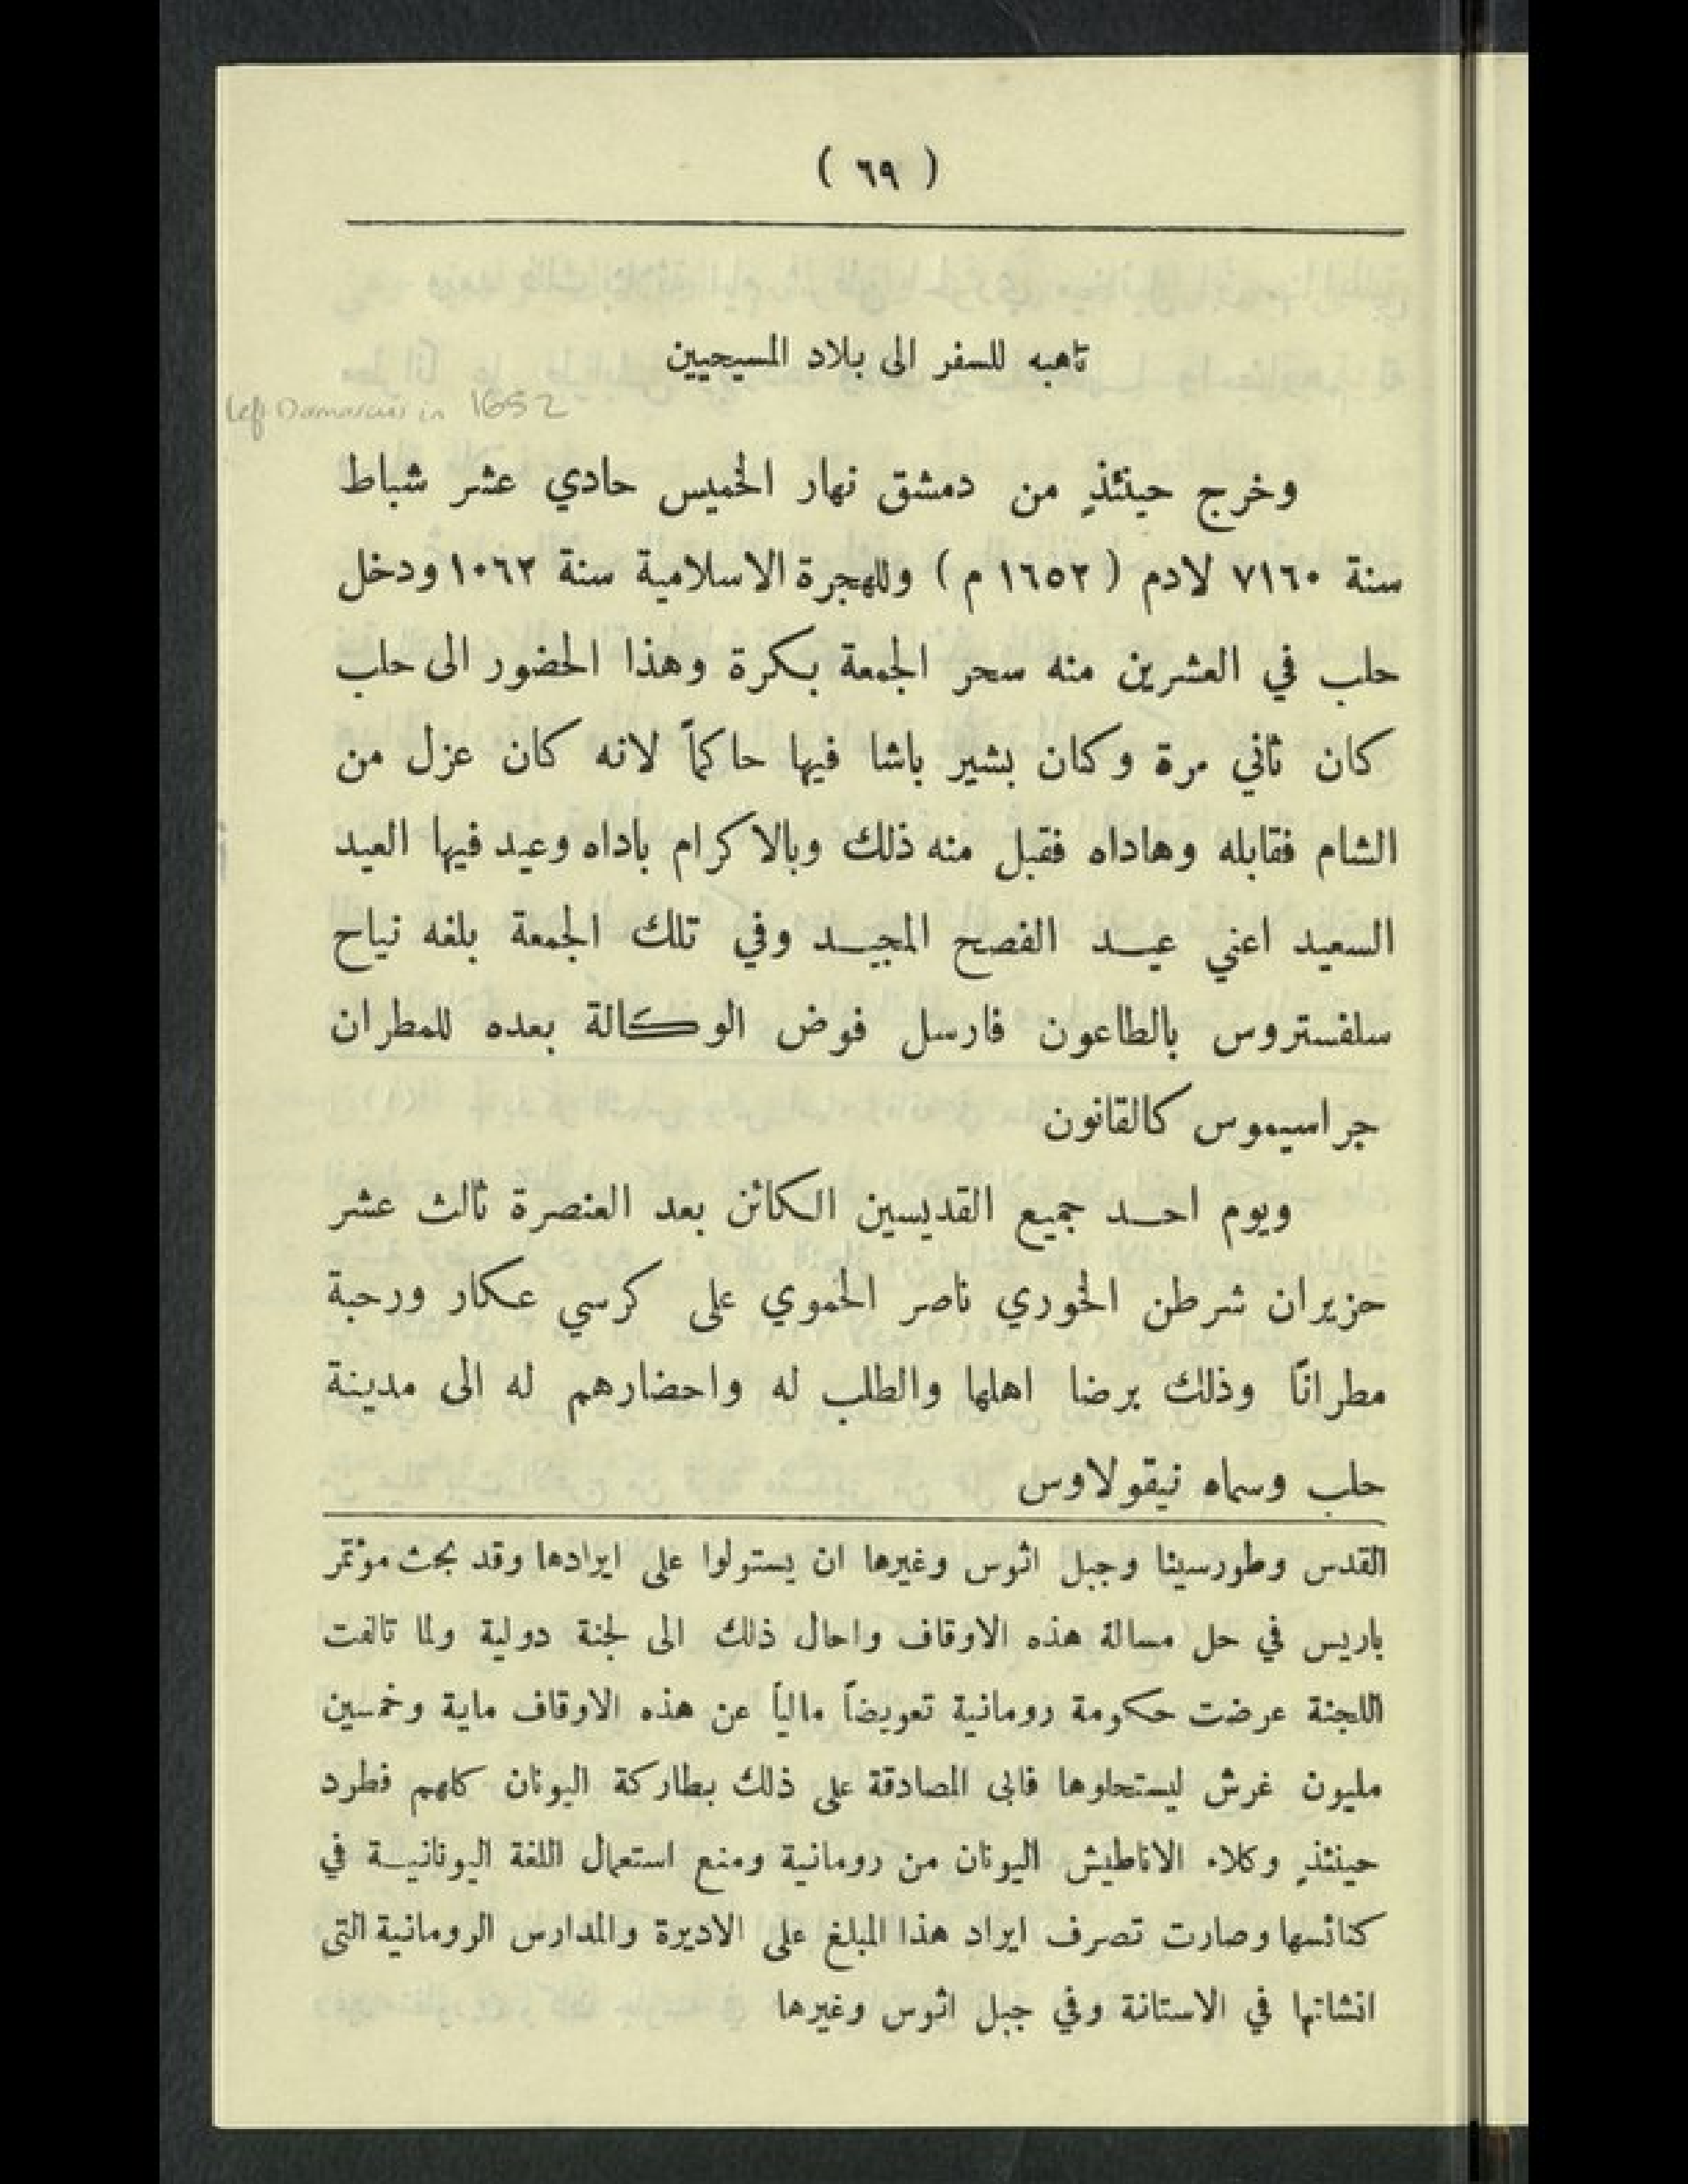 ( ٦٩ )
تاهبه للسفر الى بلاد المسيحيين
left Damascus in 1652
وخرج حينئذٍ من دمشق نهار الخميس حادي عشر شباط
سنة ٧١٦٠ لادم ( ١٦٥٢ م ) وللهجرة الاسلامية سنة ١٠٦٢ ودخل
حلب في العشرين منه سحر الجمعة بكرة وهذا الحضور الى حلب
كان ثاني مرة وكان بشير باشا فيها حاكماً لانه كان عزل من
الشام فقابله وهاداه فقبل منه ذلك وبالاكرام باداه وعيد فيها العيد
السعيد اعني عيد الفصح المجيد وفي تلك الجمعة بلغه نياح
سلفستروس بالطاعون فارسل فوض الوكالة بعده للمطران
جراسيموس كالقانون
ويوم احد جميع القديسين الكائن بعد العنصرة ثالث عشر
حزيران شرطن الخوري ناصر الحموي على كرسي عكار ورحبة
مطرانًا وذلك برضا اهلها والطلب له واحضارهم له الى مدينة
حلب وسماه نيقولاوس
القدس وطورسينا وجبل اثوس وغيرها ان يستولوا على ايرادها وقد بحث مؤتمر
باريس في حل مسالة هذه الاوقاف واحال ذلك الى لجنة دولية ولما تالفت
اللجنة عرضت حكومة رومانية تعويضاً مالياً عن هذه الاوقاف ماية وخمسين
مليون غرش ليستحلوها فابى المصادقة على ذلك بطاركة اليونان كلهم فطرد
حينئذٍ وكلاء الاناطيش اليونان من رومانية ومنع استعمال اللغة اليونانية في
كنائسها وصارت تصرف ايراد هذا المبلغ على الاديرة والمدارس الرومانية التى
انشاتها في الاستانة وفي جبل اثوس وغيرها